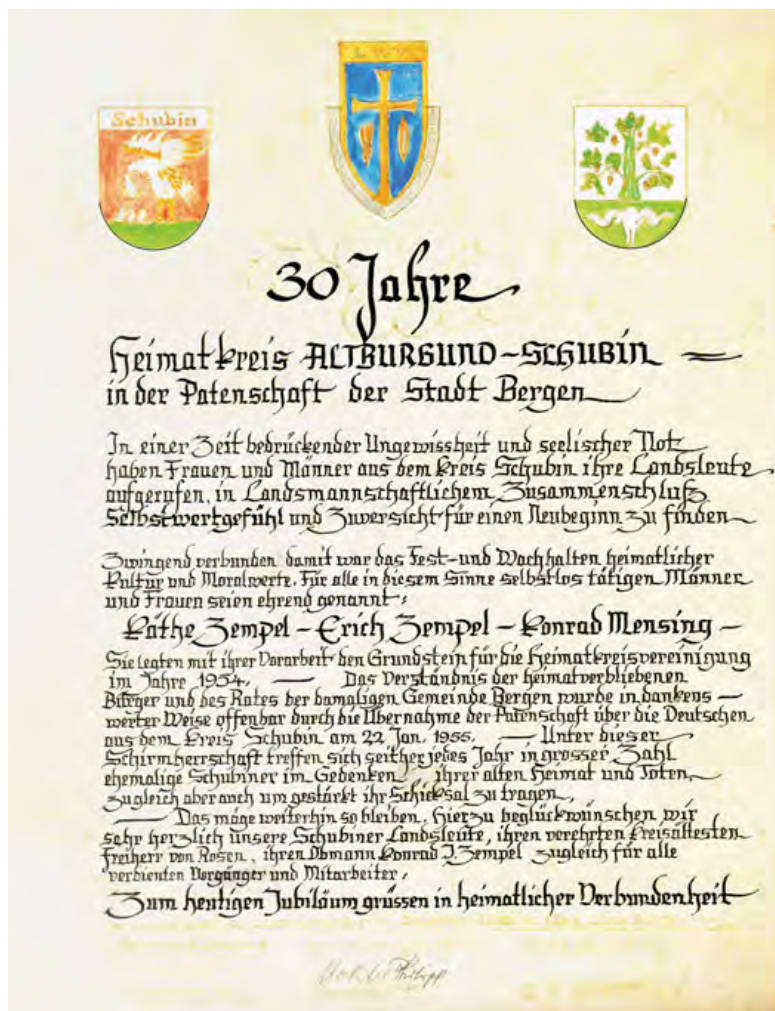 Schubin
30 Jahre
Heimatkreis ALTBURGUND-SCHUBIN
in der Patenschaft der Stadt Bergen
In einer Zeit bedrückender Ungewissheit und seelischer Not
haben Frauen und Männer aus dem Kreis Schubin ihre Landsleute
aufgerufen, in Landsmannschaftlichem Zusammenschluß
Selbstwertgefühl und Zuversicht für einen Neubeginn zu finden
Zwingend verbunden damit war das Fest- und Wachhalten heimatlicher
Kultur und Moralwerte. Für alle in diesem Sinne selbstlos tätigen Männer
und Frauen seien ehrend genannt:
Käthe Zempel - Erich Zempel - Konrad Mensing -
Sie legten mit ihrer Vorarbeit den Grundstein für die Heimatkreisvereinigung
im Jahre 1954. — Das Verständnis der heimatverbliebenen
Bürger und des Rates der damaligen Gemeinde Bergen wurde in dankens-
werter Weise offenbar durch die Übernahme der Patenschaft über die Deutschen
aus dem Kreis Schubin am 22. Jan. 1955. — Unter dieser
Schirmherrschaft treffen sich seither jedes Jahr in grosser Zahl
ehemalige Schubiner im Gedenken ihrer alten Heimat und Toten,
zugleich aber auch um gestärkt ihr Schicksal zu tragen.
— Das möge weiterhin so bleiben. Hierzu beglückwünschen wir
sehr herzlich unsere Schubiner Landsleute, ihren verehrten Kreisältesten
Freiherr von Rosen, ihren Obmann Konrad J. Zempel zugleich für alle
verdienten Vorgänger und Mitarbeiter,
Zum heutigen Jubiläum grüssen in heimatlicher Verbundenheit
Philipp